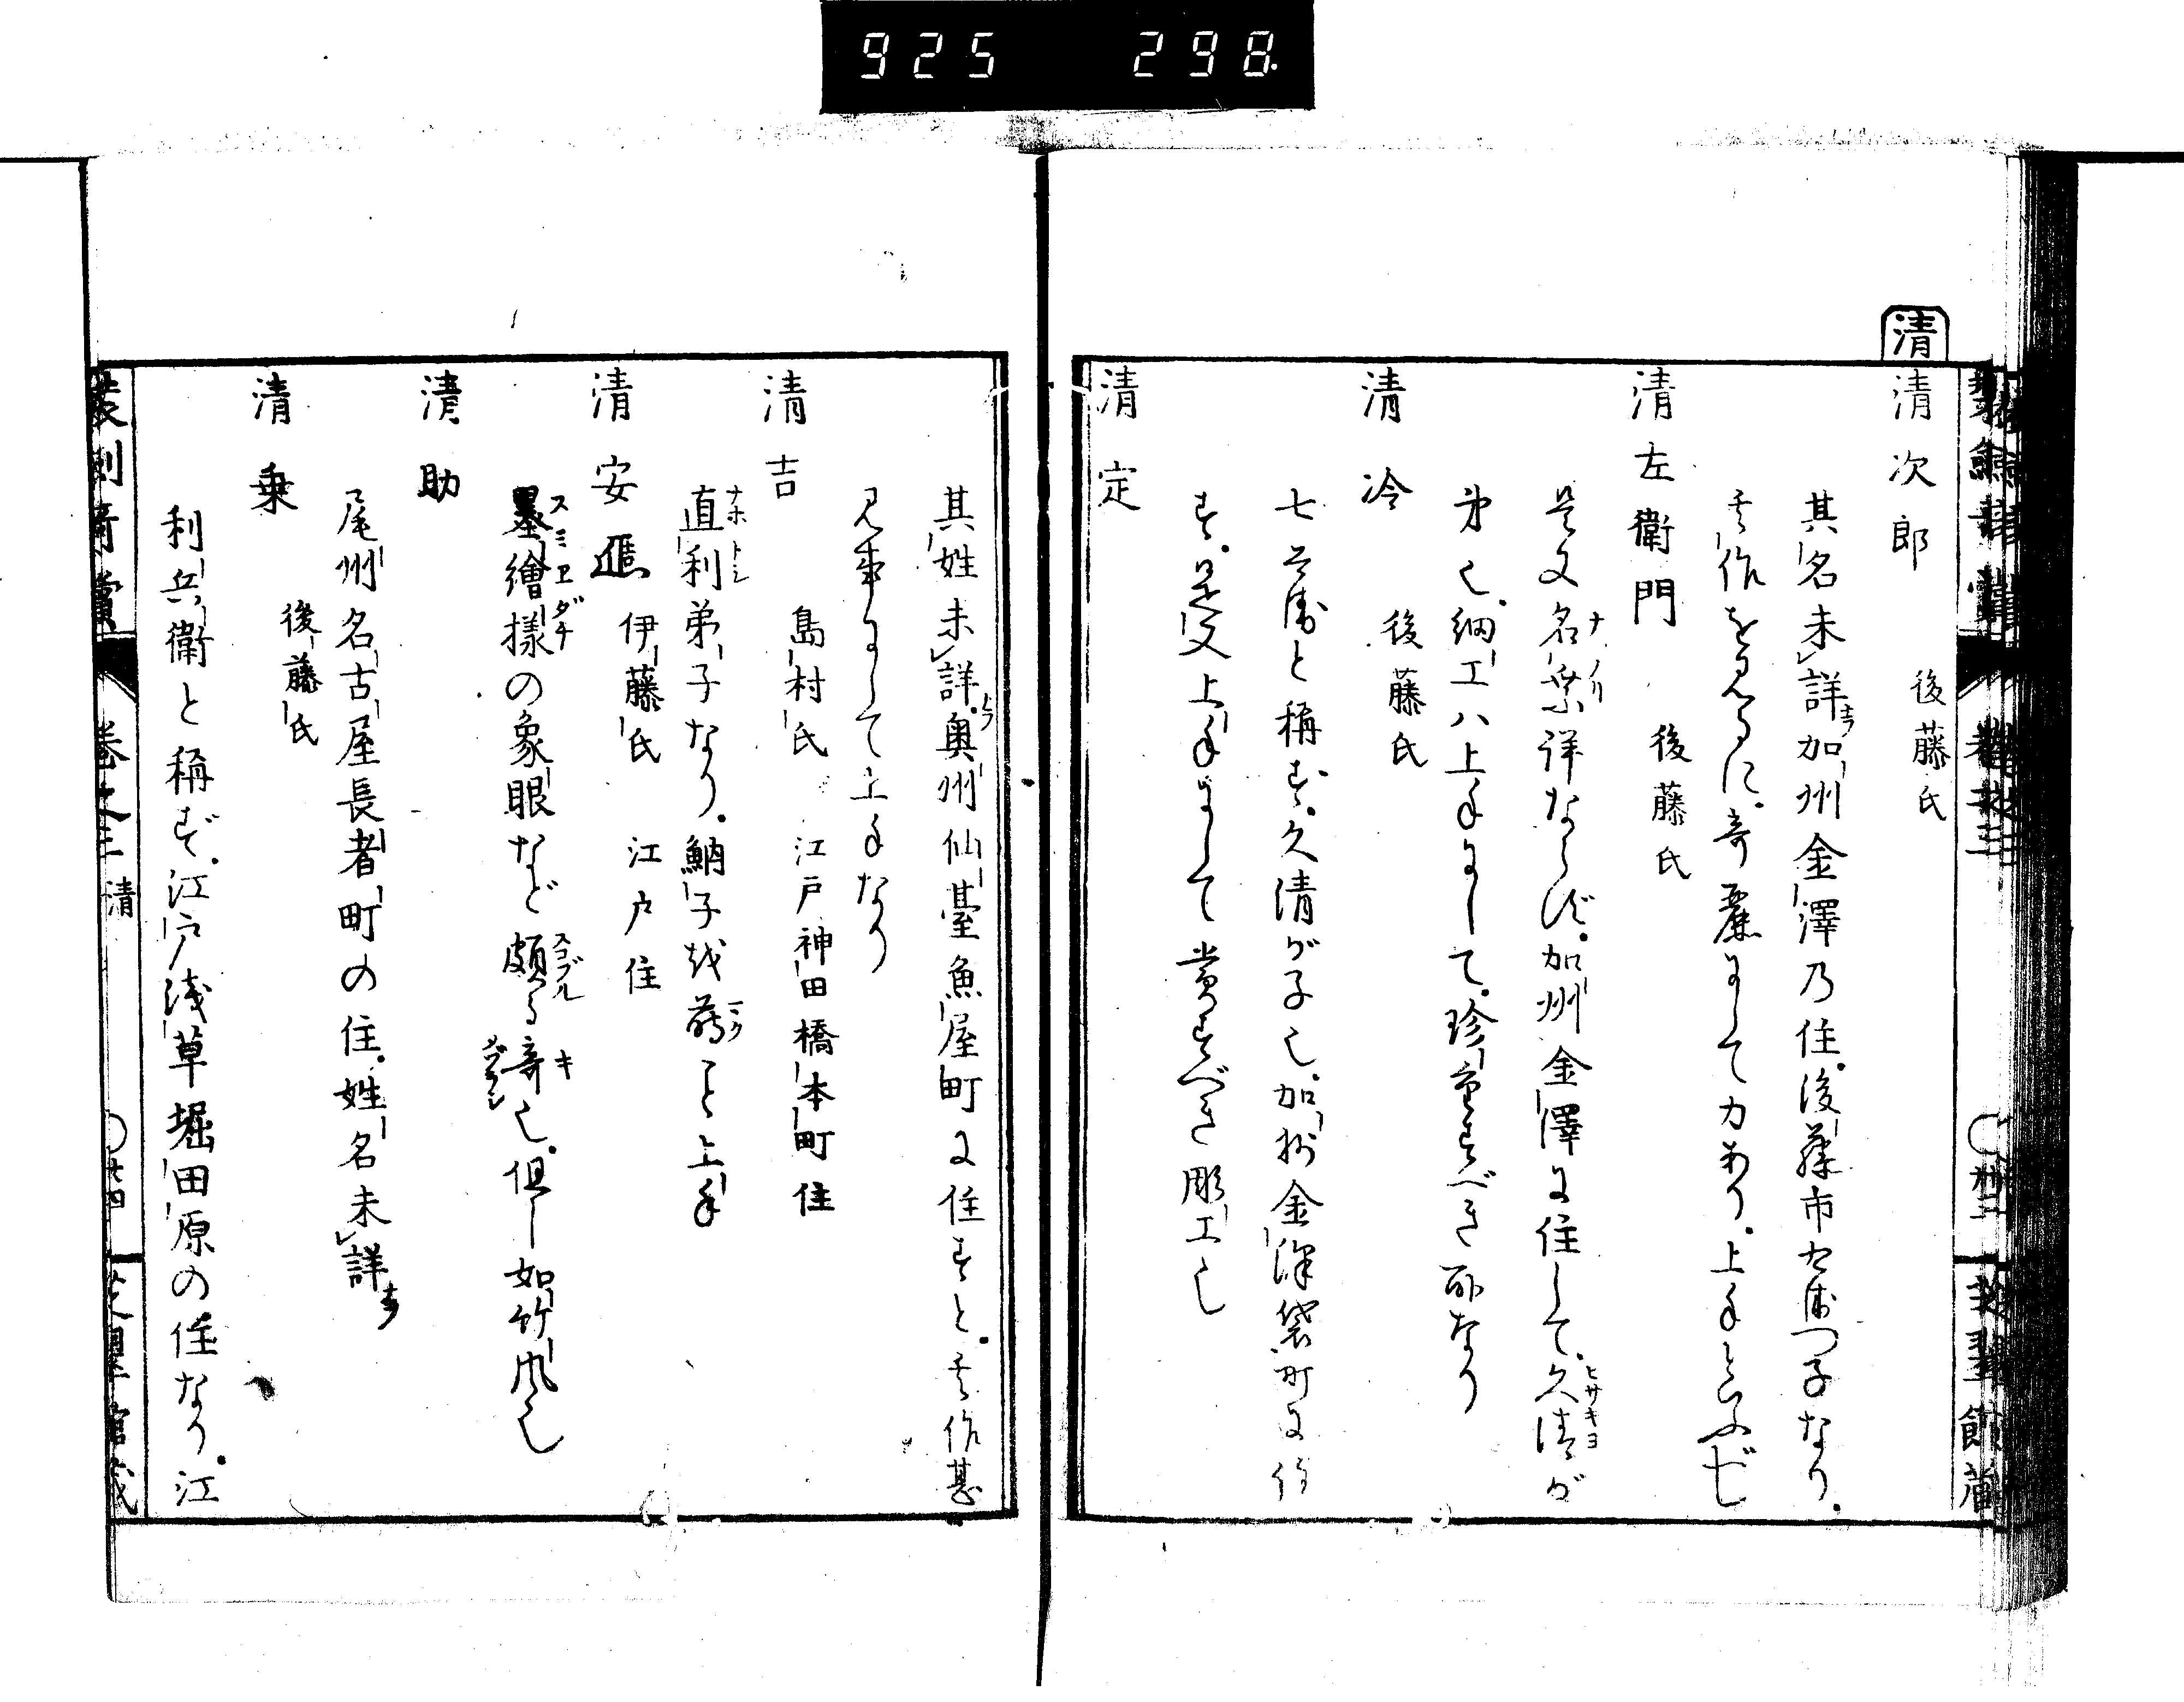 925 298
清
清次郎 後藤氏
其名未詳加州金澤乃住。後藤市右衛門子なり。
其作を見るに。奇麗にして力あり。上手といふべし
清左衛門 後藤氏
是又名乘詳ならず。加州金澤に住して。久清が
弟也。細工ハ上手にして。珍重すべき所なり
清冷 後藤氏
七兵衛と稱す。久清が子也。加州金澤袋町に住
す。是又上手にして賞すべき彫工也
清定
其姓未詳。奥州仙臺魚屋町に住すと。其作甚
見事にして上手なり
清吉 島村氏 江戸神田橋本町住
直利弟子なり。魶子越蒔こと上手
清安 伊藤氏 江戸住
墨繪様の象眼など頗る奇也。但し如竹風也
清助
尾州名古屋長者町の住。姓名未詳
清乗 後藤氏
利兵衛と稱ず。江戸浅草堀田原の住なり。江
装剣奇賞 巻之三 清 〇廿四